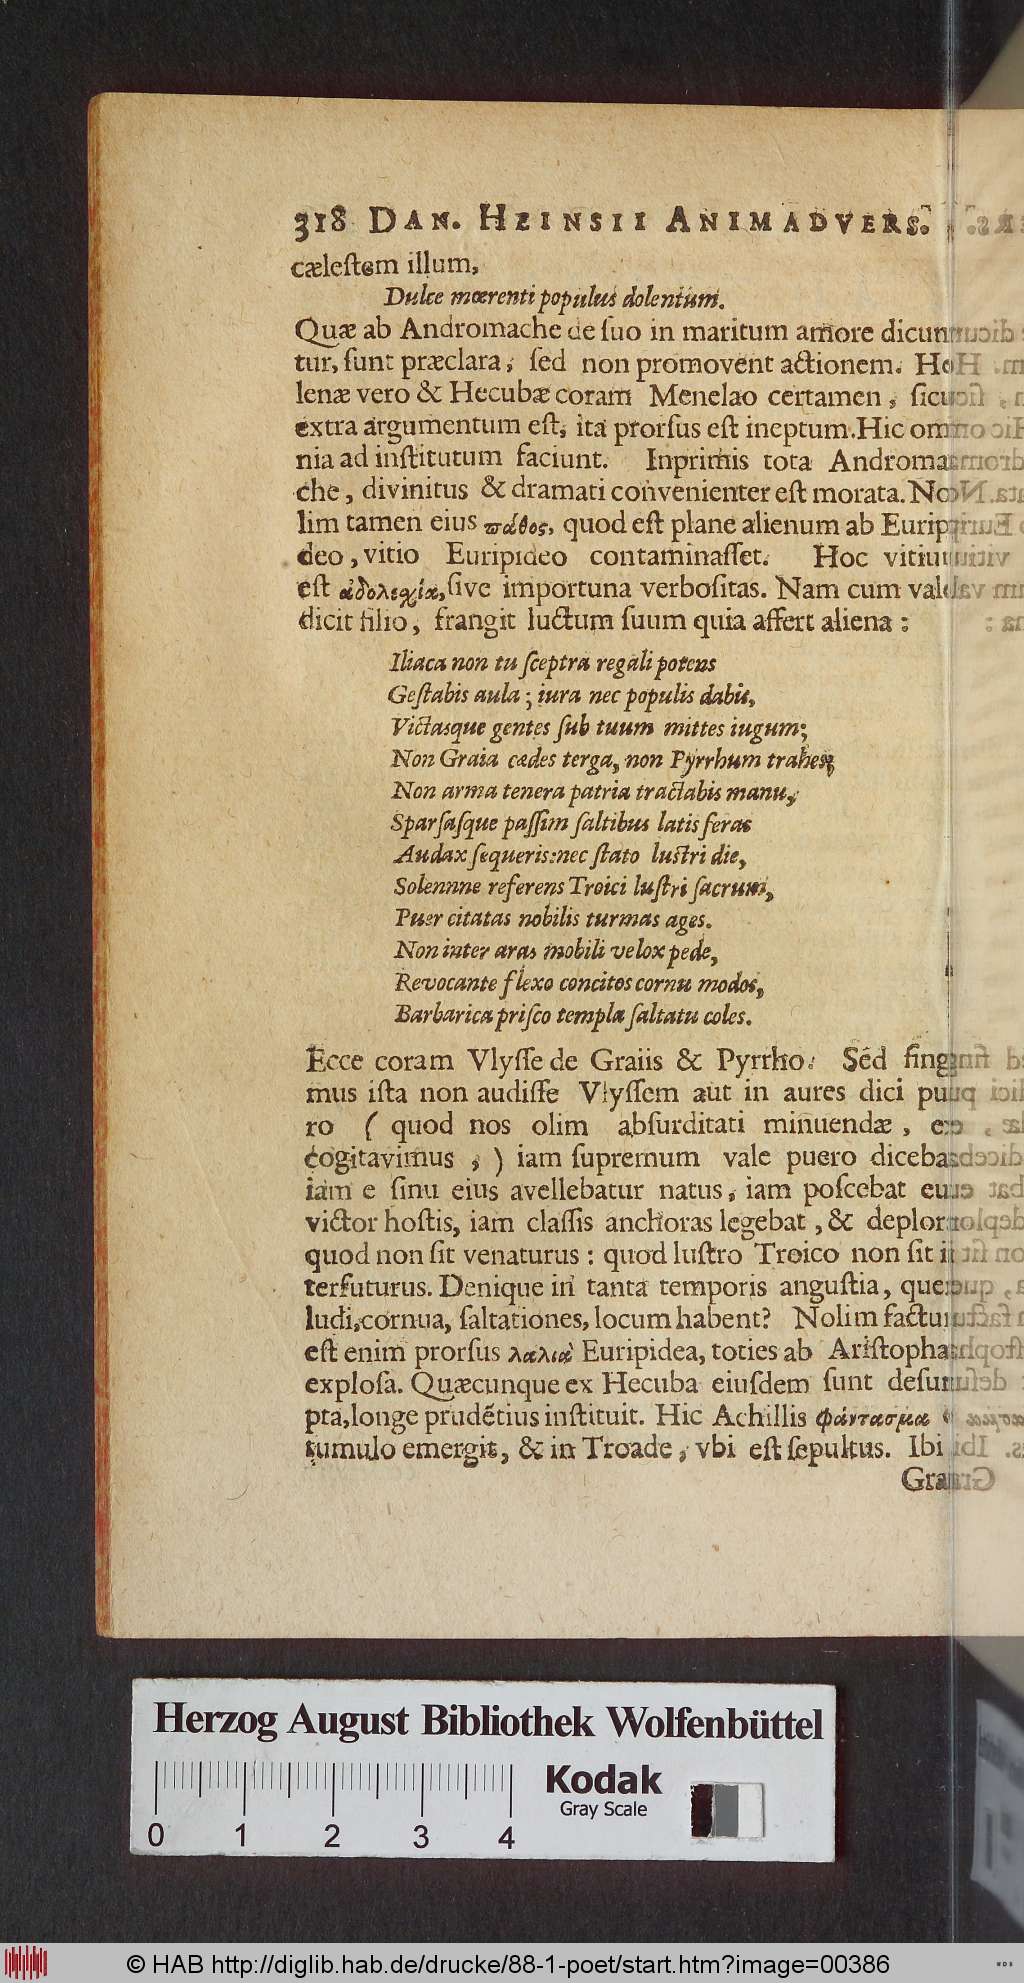 318 DAN. HEINSII ANIMADVERS.
cæleſtem illum,
Dulce mœrenti populus dolentum.
Quæ ab Andromache de ſuo in maritum amore dicun
tur, ſunt præclara, ſed non promovent actionem. He
lenæ vero & Hecubæ coram Menelao certamen, ſicu
extra argumentum eſt, ita prorſus eſt ineptum. Hic om
nia ad inſtitutum faciunt. Inprimis tota Androma
che, divinitus & dramati convenienter eſt morata. No
lim tamen eius πάθος, quod eſt plane alienum ab Euripi
deo, vitio Euripideo contaminaſſet. Hoc vitium
eſt ἀδολεχία, ſive importuna verboſitas. Nam cum vale
dicit filio, frangit luctum ſuum quia affert aliena :
Iliaca non tu ſceptra regali potens
Geſtabis aula ; iura nec populis dabis,
Victasque gentes ſub tuum mittes iugum;
Non Graia cædes terga, non Pyrrhum trahes;
Non arma tenera patria tractabis manu,
Sparſaſque paſſim ſaltibus latis feras
Audax ſequeris: nec ſtato luſtri die,
Solennne referens Troici luſtri ſacrum,
Puer citatas nobilis turmas ages.
Non inter aras mobili velox pede,
Revocante flexo concitos cornu modos,
Barbarica priſco templa ſaltatu coles.
Ecce coram Vlyſſe de Graiis & Pyrrho. Sed finga
mus iſta non audiſſe Vlyſſem aut in aures dici pue
ro ( quod nos olim abſurditati minuendæ, ex
cogitavimus , ) iam ſupremum vale puero dicebat
iam e ſinu eius avellebatur natus, iam poſcebat eum
victor hoſtis, iam claſſis anchoras legebat, & deplorat
quod non ſit venaturus : quod luſtro Troico non ſit in
terfuturus. Denique in tanta temporis anguſtia, quem
ludi, cornua, ſaltationes, locum habent? Nolim factum
eſt enim prorſus λαλιὰ Euripidea, toties ab Ariſtophane
exploſa. Quæcunque ex Hecuba eiuſdem ſunt deſum
pta, longe prudẽtius inſtituit. Hic Achillis φάντασμα
tumulo emergit, & in Troade, vbi eſt ſepultus. Ibi
Græ
Herzog August Bibliothek Wolfenbüttel
0 1 2 3 4
Kodak
Gray Scale
© HAB http://diglib.hab.de/drucke/88-1-poet/start.htm?image=00386